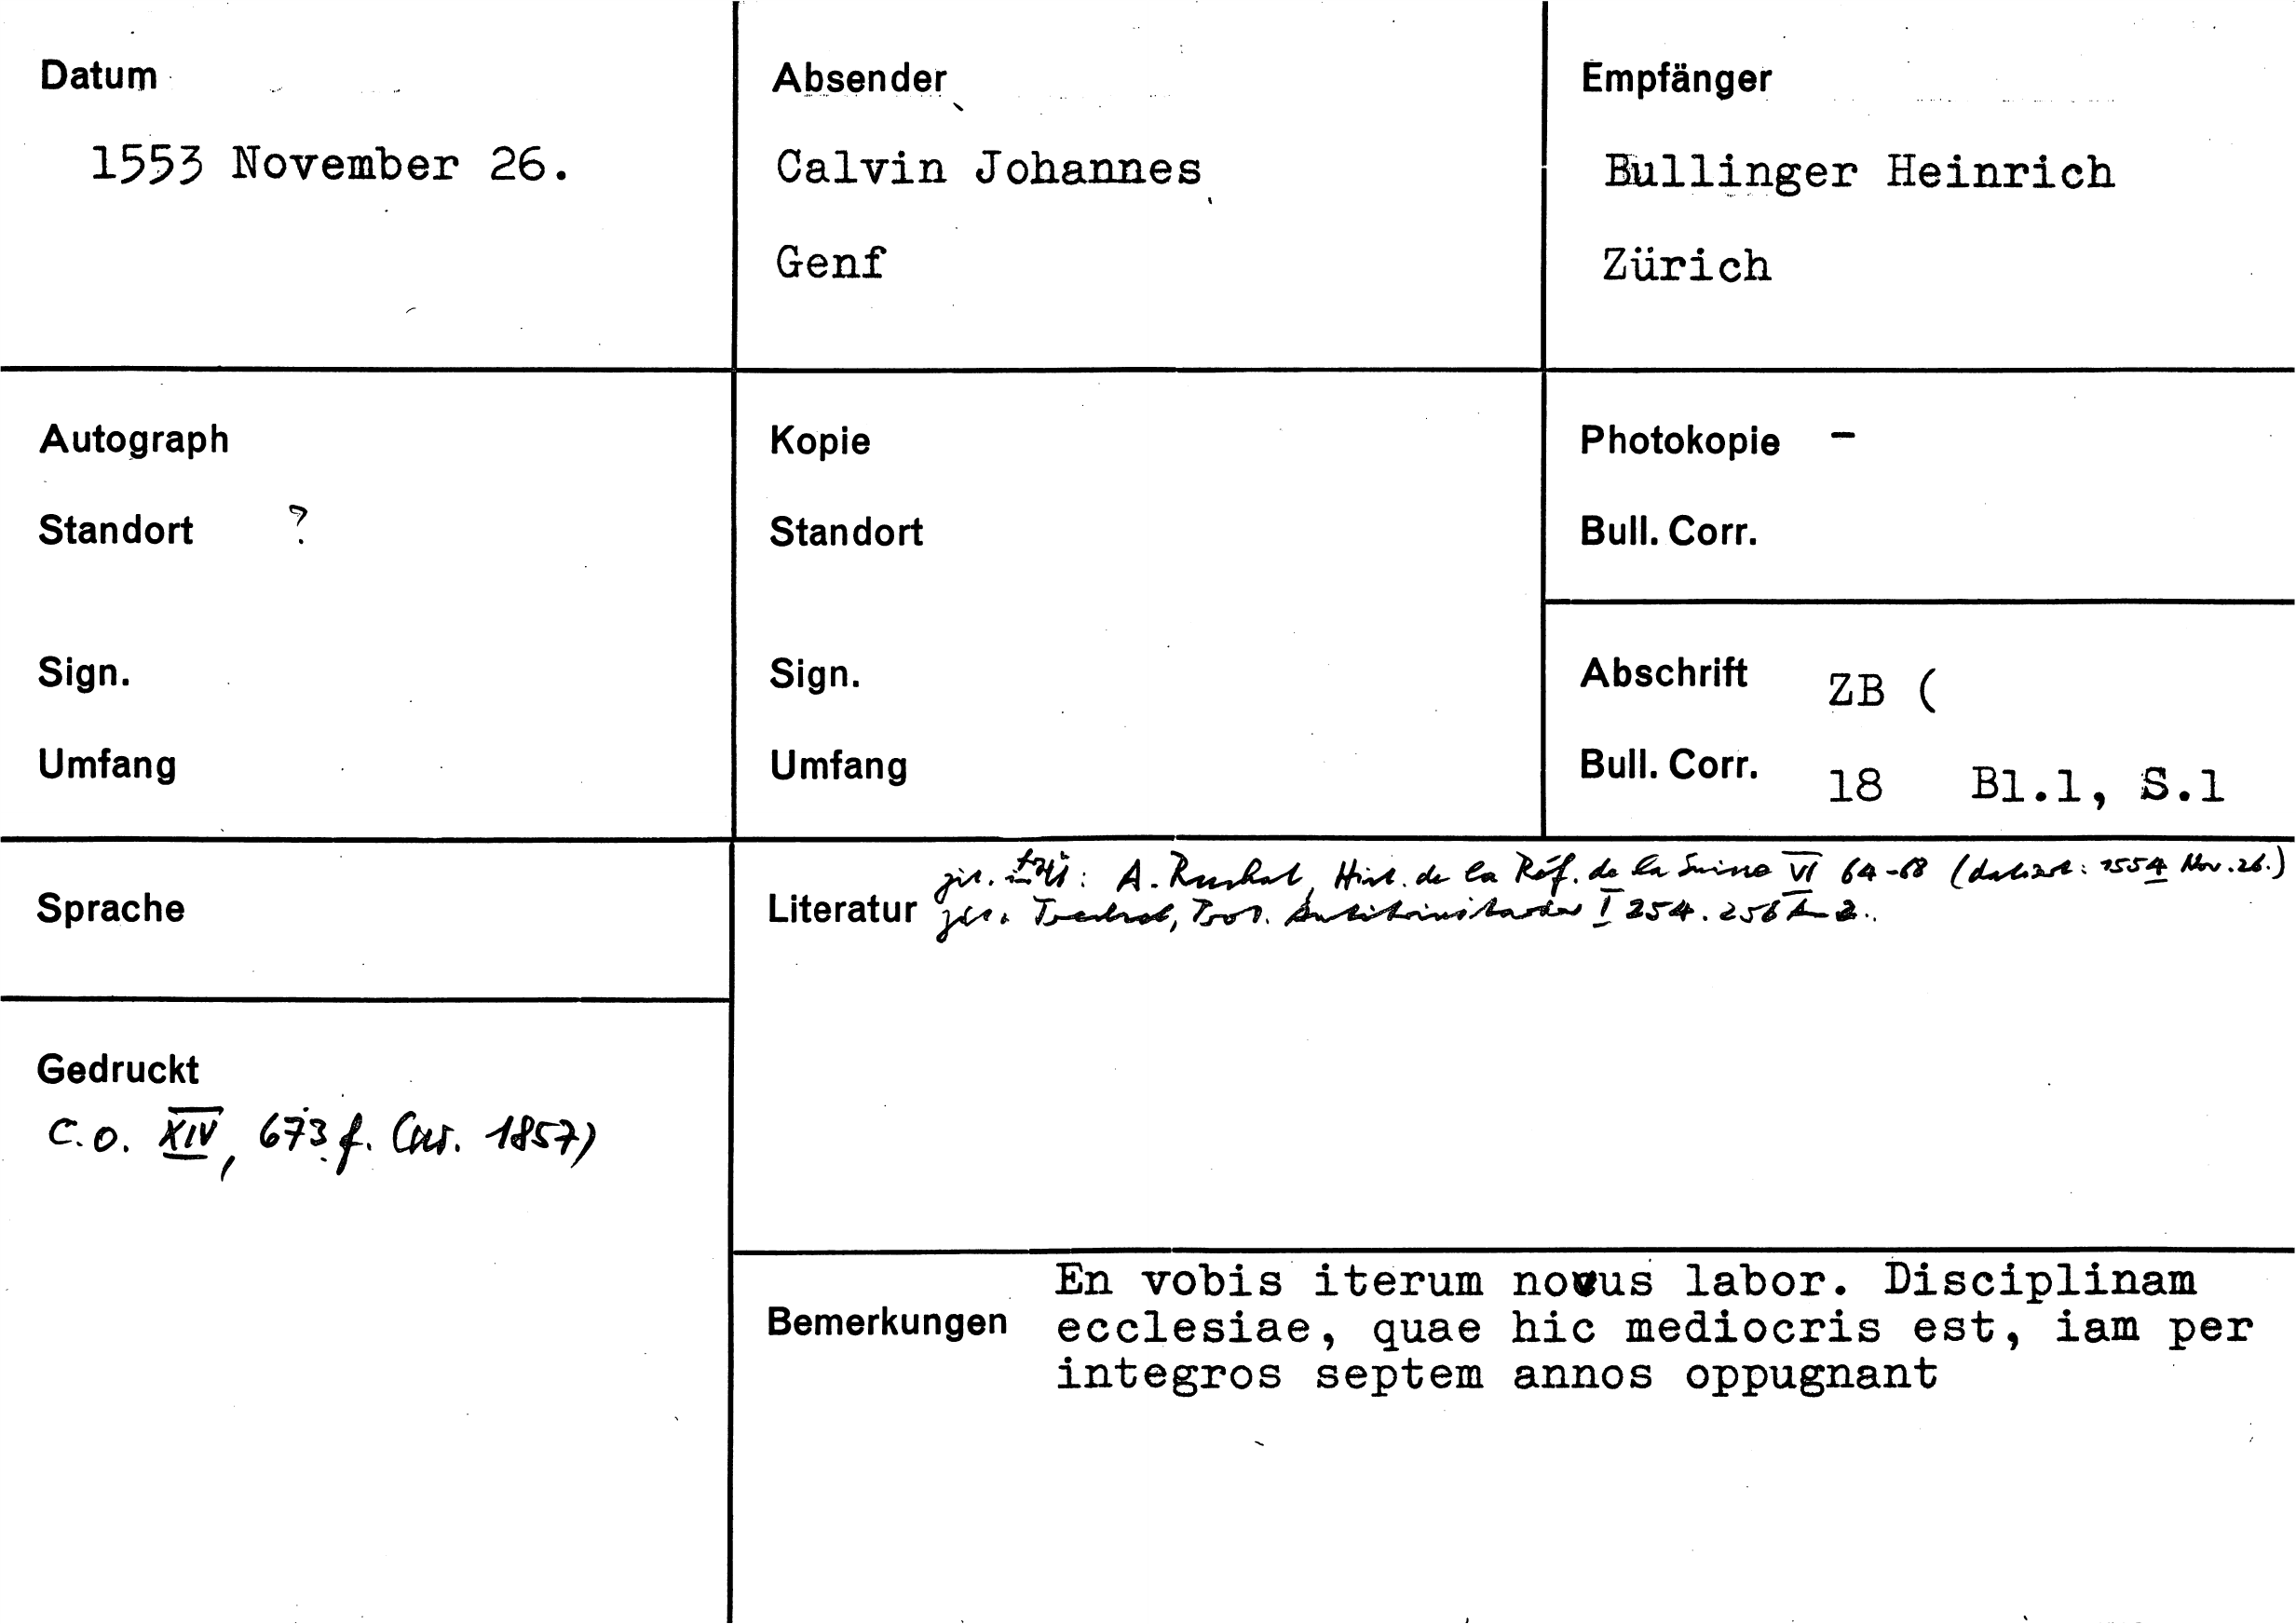 Datum
1553 November 26.
Absender
Calvin Johannes
Genf
Empfänger
Bullinger Heinrich
Zürich
Autograph
Standort ?
Sign.
Umfang
Kopie
Standort
Sign.
Umfang
Photokopie -
Bull. Corr.
Abschrift ZB (
Bull. Corr. 18 Bl.1, S.1
Sprache
Literatur
zit. A. Ruchat, Hist. de la Réf. de la Suisse VI 64-68 (datiert: 1554 Nov. 26.)
Trechsel, Prot. Antitrinitarier I 254. 256
Gedruckt
C.O. XIV, 673 f. (nr. 1857)
Bemerkungen
En vobis iterum novus labor. Disciplinam
ecclesiae, quae hic mediocris est, iam per
integros septem annos oppugnant